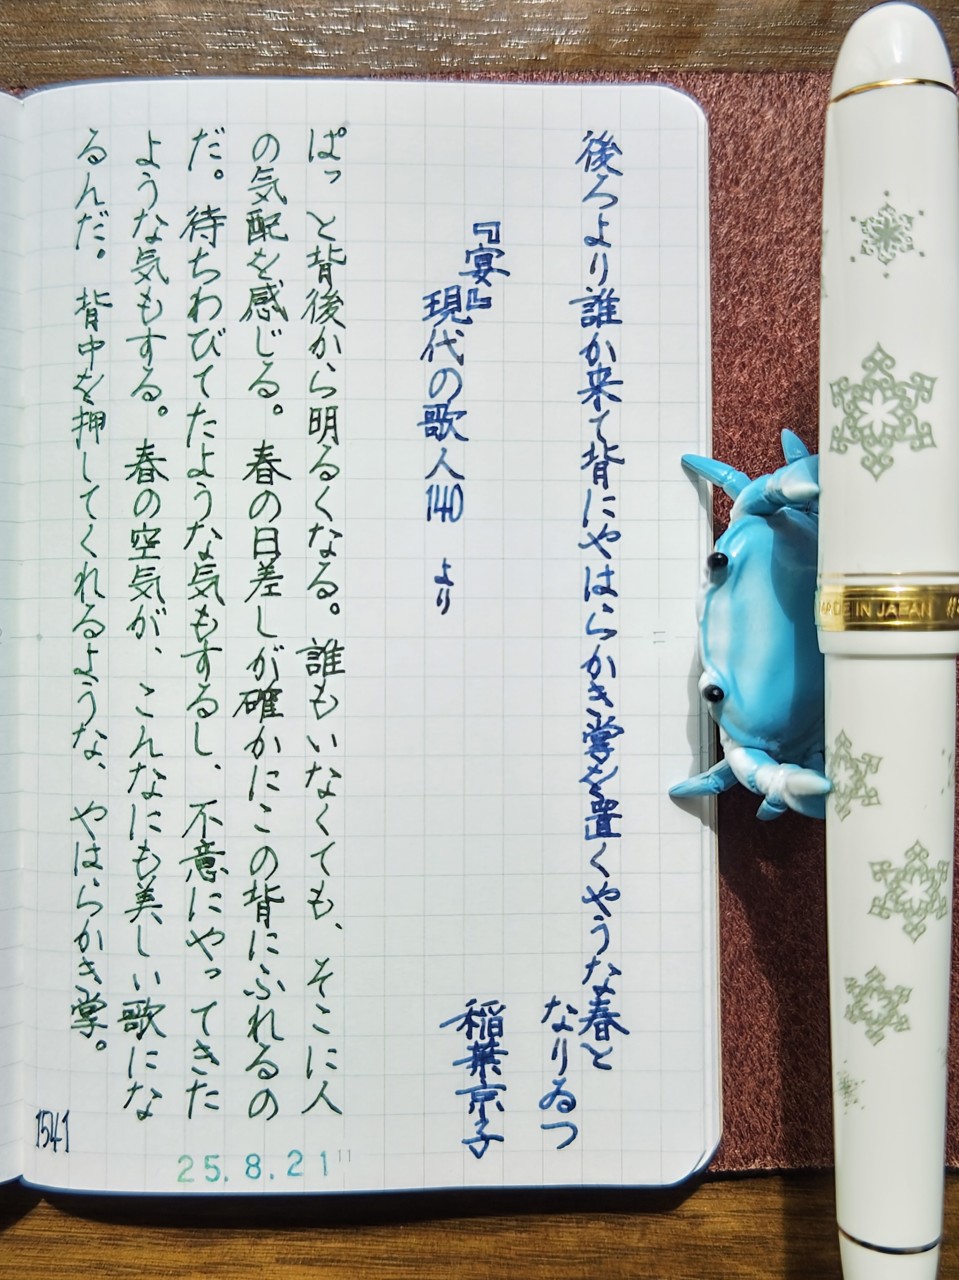 後ろより誰か来て背にやはらかき掌を置くやうな春と
なりゐつ
『宴』
稲葉京子
現代の歌人140 より
ぱっと背後から明るくなる。誰もいなくても、そこに人
の気配を感じる。春の日差しが確かにこの背にふれるの
だ。待ちわびてたような気もするし、不意にやってきた
ような気もする。春の空気が、こんなにも美しい歌にな
るんだ。背中を押してくれるような、やはらかき掌。
1541
25.8.21
MADE IN JAPAN